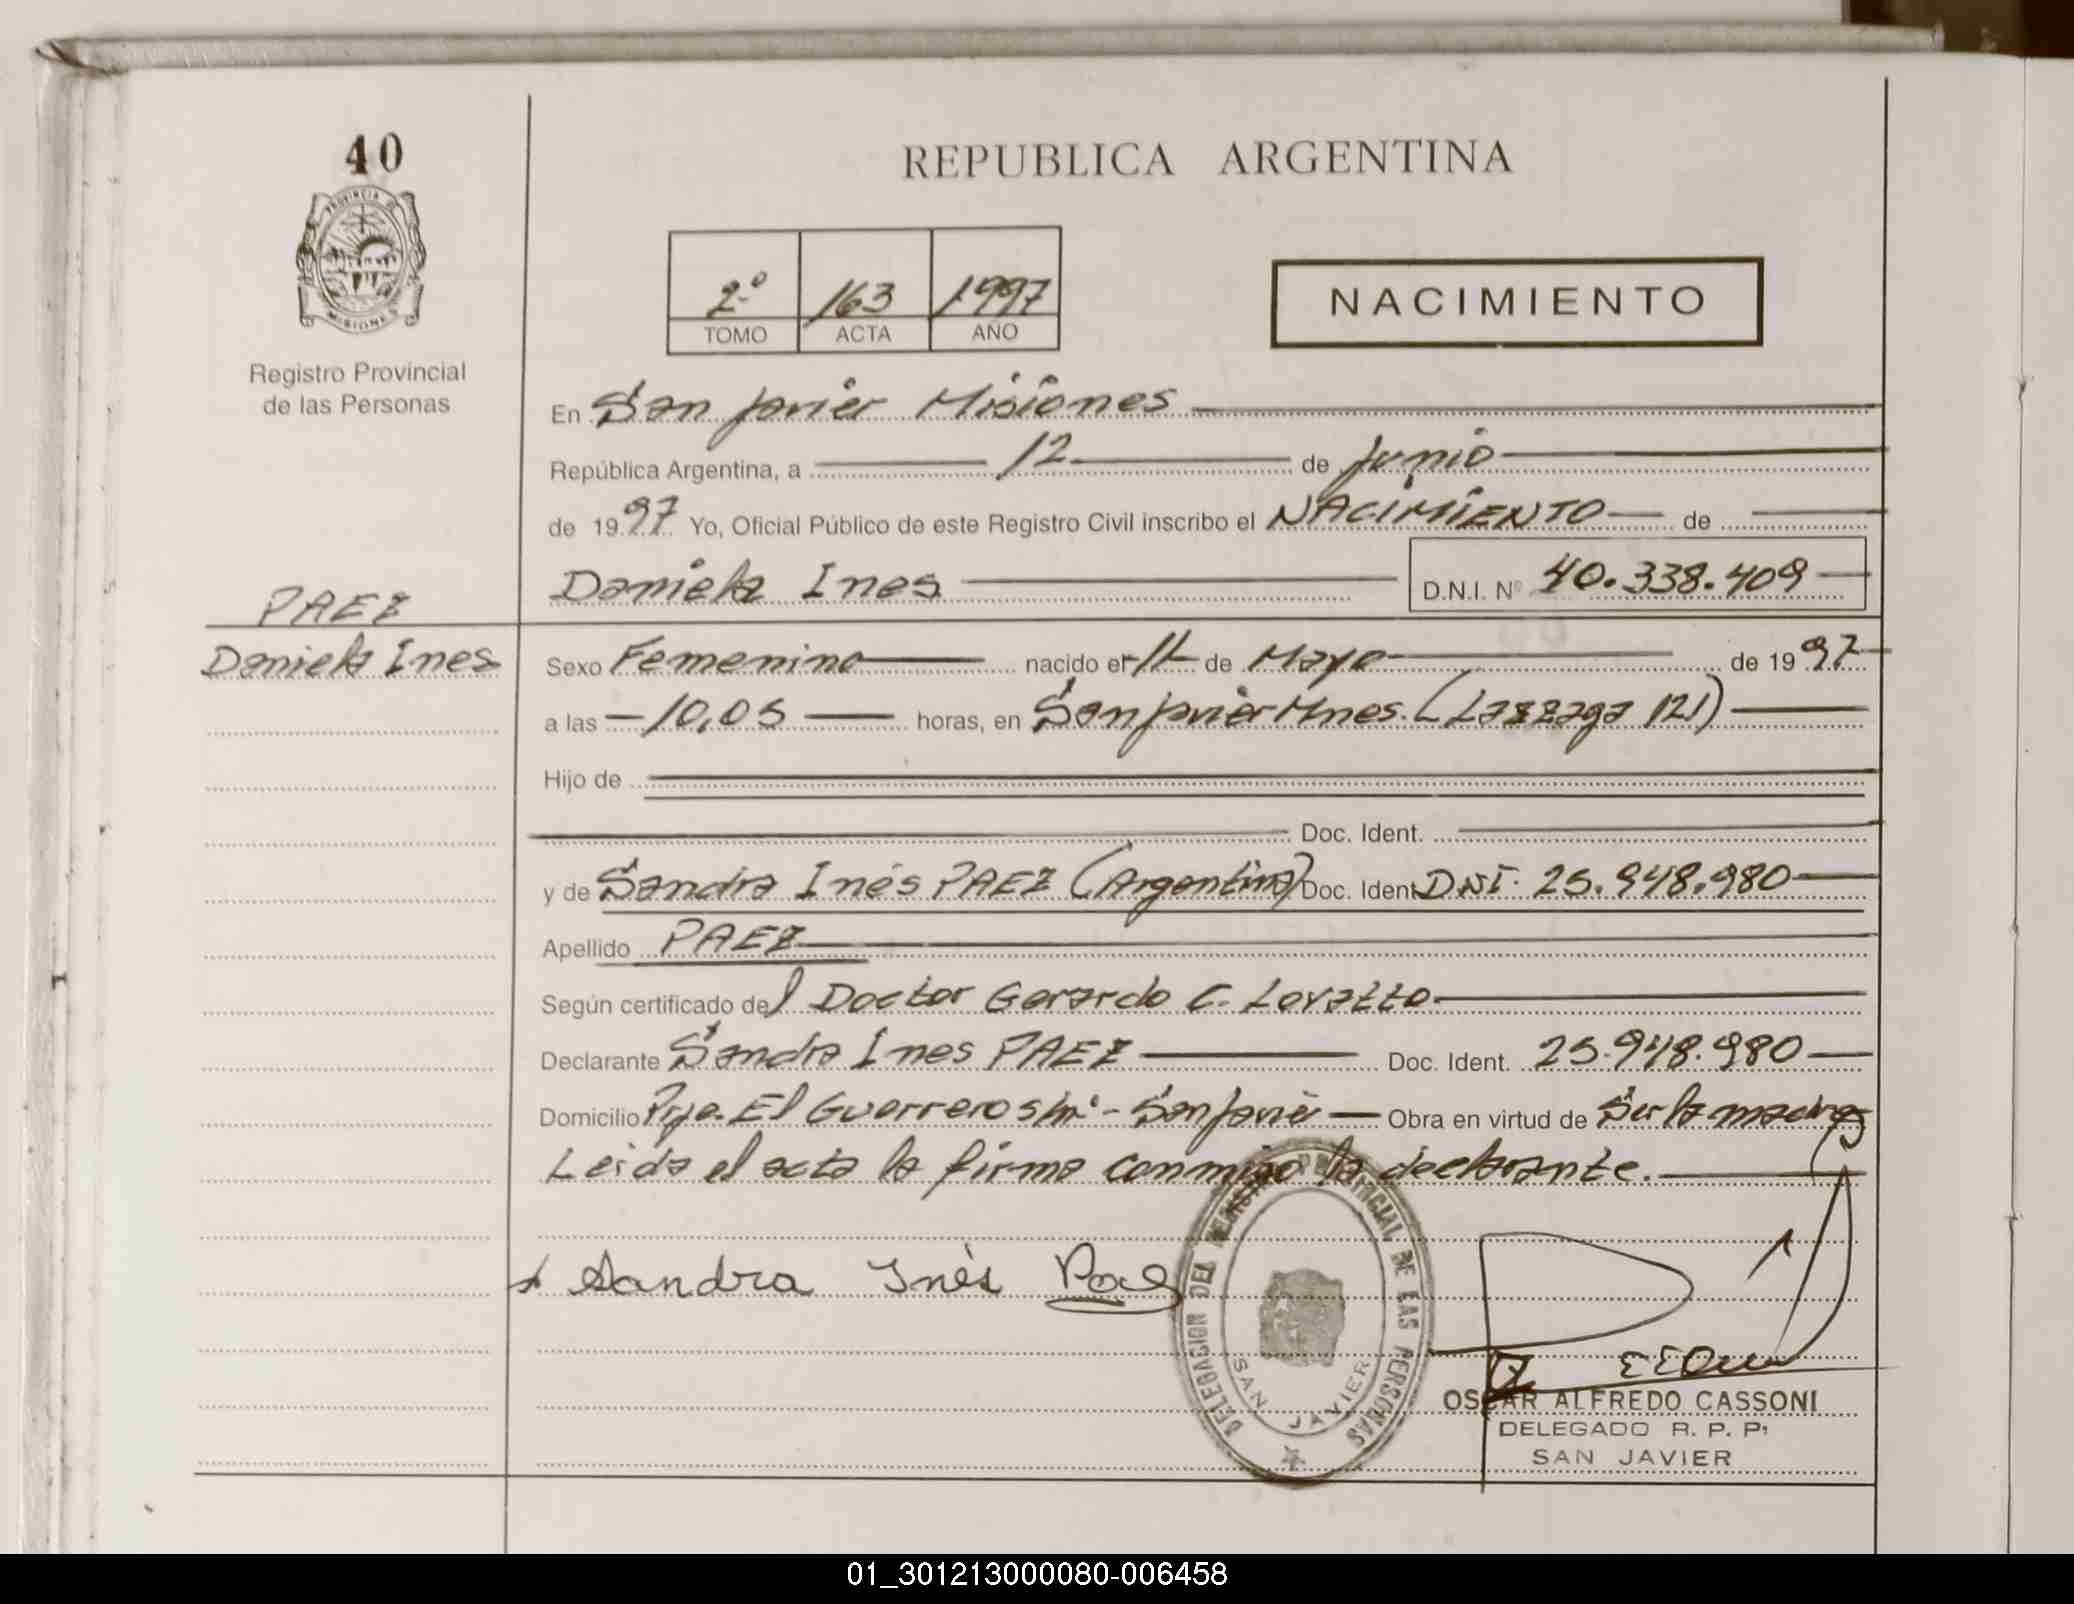 40
REPUBLICA ARGENTINA
PROVINCIA DE
MISIONES
2º 163 1997
TOMO ACTA AÑO
NACIMIENTO
Registro Provincial
de las Personas
En San Javier Misiones
República Argentina, a 12 de Junio
de 1997 Yo, Oficial Público de este Registro Civil inscribo el NACIMIENTO de
Daniela Ines D.N.I. Nº 40.338.409
PAEZ
Daniela Ines
Sexo Femenino nacido el 11 de Mayo de 1997
a las 10,05 horas, en San Javier Mnes. (Lazzaga 121)
Hijo de
Doc. Ident.
y de Sandra Inés PAEZ (Argentina) Doc. Ident DNI. 25.948.980
Apellido PAEZ
Según certificado del Doctor Gerardo C. Lovatto
Declarante Sandra Ines PAEZ Doc. Ident. 25.948.980
Domicilio Pje. El Guerrero s/nº - San Javier Obra en virtud de Ser la madre
Leida el acta la firma conmigo la declarante.
Sandra Inés Paez
DELEGACION DEL REGISTRO PROVINCIAL DE LAS PERSONAS
SAN JAVIER
OSCAR ALFREDO CASSONI
DELEGADO R. P. P.
SAN JAVIER
01_301213000080-006458